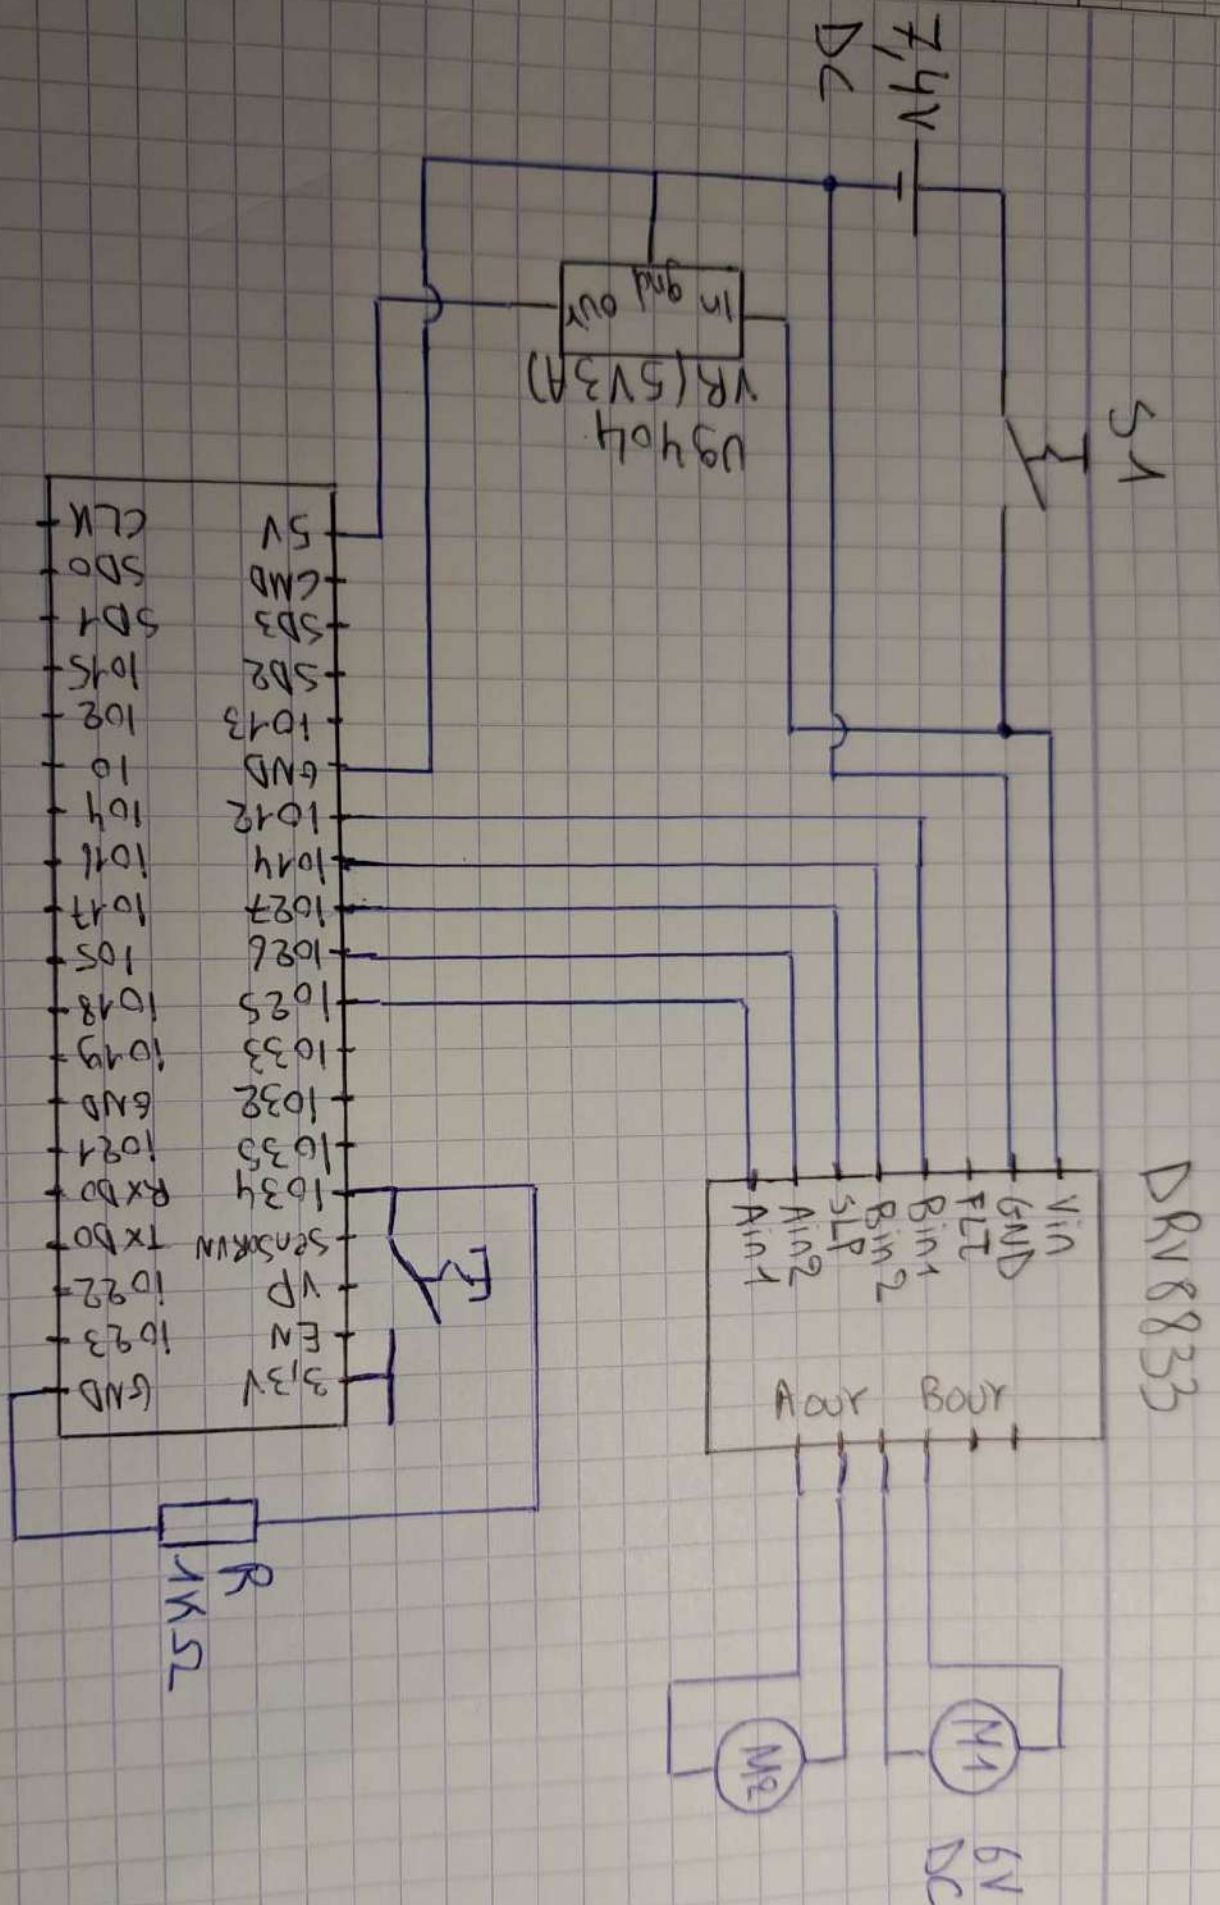 7,4V
DC
S1
In gnd OUT
VR(5V3A)
U3404
DRV8833
Vin
GND
FLT
Bin1
Bin2
SLP
Ain2
Ain1
Aout
Bout
M1
M2
6V
DC
5V
GND
SD3
SD2
io13
GND
io12
io14
io27
io26
io25
io33
io32
io35
io34
SENSORVN
VP
EN
3,3V
CLK
SD0
SD1
io15
io2
io
io4
io16
io17
io5
io18
io19
GND
io21
RxD0
TxD0
io22
io23
GND
R
1KΩ